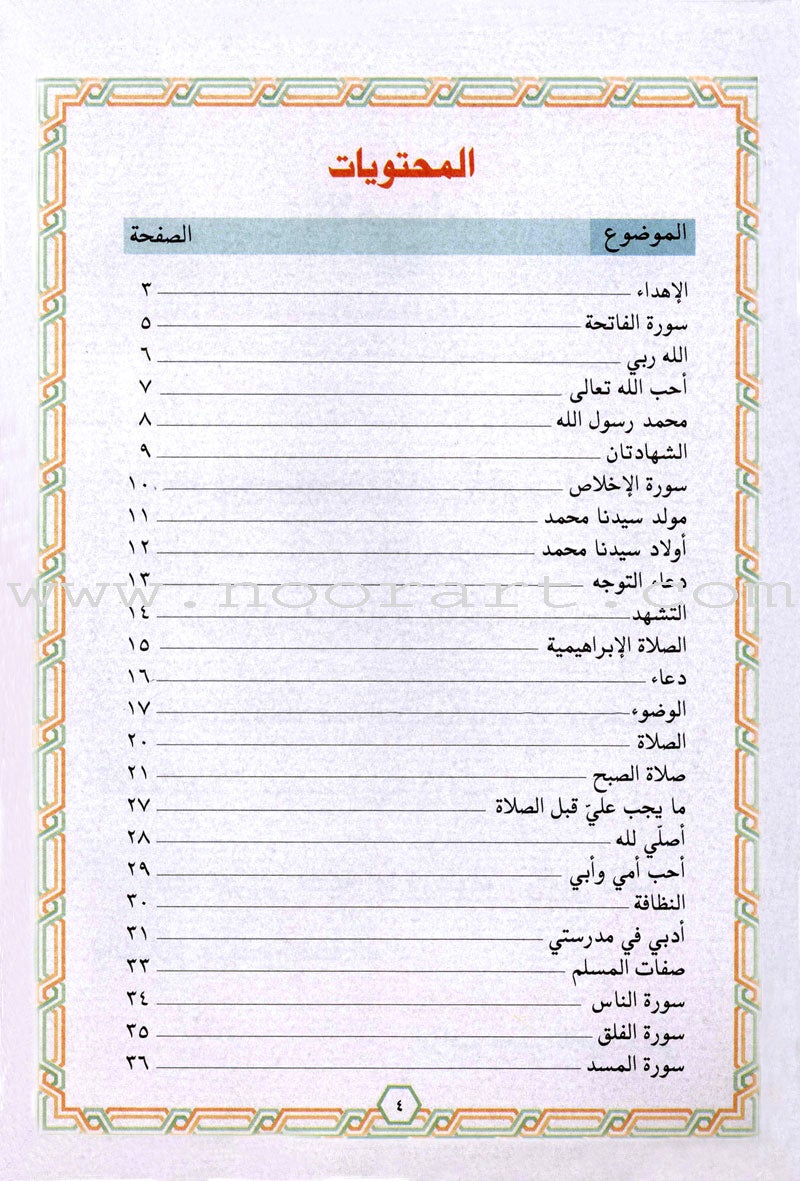 المحتويات
الموضوع الصفحة
الإهداء ٣
سورة الفاتحة ٥
الله ربي ٦
أحب الله تعالى ٧
محمد رسول الله ٨
الشهادتان ٩
سورة الإخلاص ١٠
مولد سيدنا محمد ١١
أولاد سيدنا محمد ١٢
دعاء التوجه ١٣
www.noorart.com
التشهد ١٤
الصلاة الإبراهيمية ١٥
دعاء ١٦
الوضوء ١٧
الصلاة ٢٠
صلاة الصبح ٢١
ما يجب عليّ قبل الصلاة ٢٧
أصلّي لله ٢٨
أحب أمي وأبي ٢٩
النظافة ٣٠
أدبي في مدرستي ٣١
صفات المسلم ٣٣
سورة الناس ٣٤
سورة الفلق ٣٥
سورة المسد ٣٦
٤